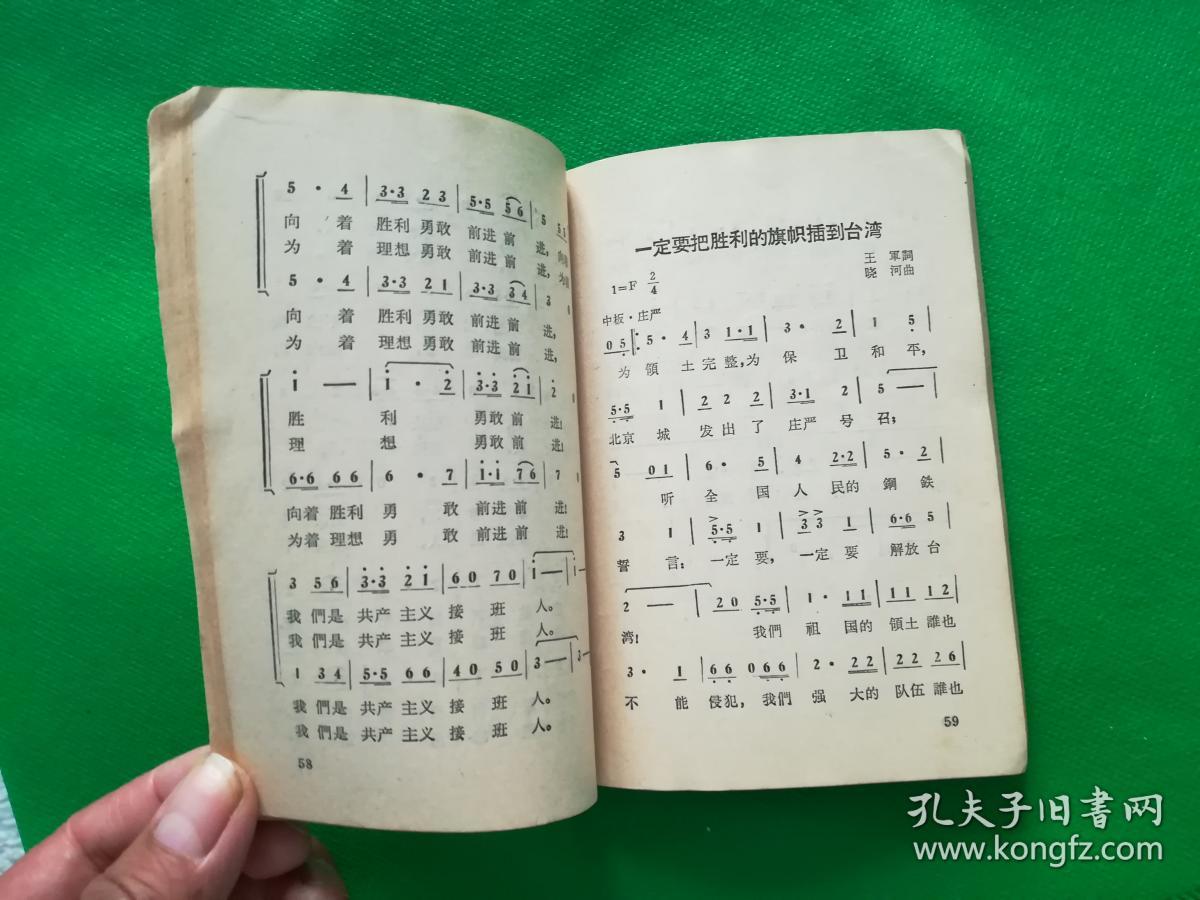 5 · 4 | 3·3 2 3 | 5·5 5 6 | 5 5 5
向 着 胜利 勇敢 前进 前 进, 向着
为 着 理想 勇敢 前进 前 进, 为着
5 · 4 | 3·3 2 1 | 3·3 3 4 | 3 0
向 着 胜利 勇敢 前进 前 进,
为 着 理想 勇敢 前进 前 进,
i — | i · 2 | 3·3 2 i | 2 0
胜 利 勇敢 前 进!
理 想 勇敢 前 进!
6·6 6 6 | 6 · 7 | i·i 7 6 | 7
向着 胜利 勇 敢 前进 前 进!
为着 理想 勇 敢 前进 前 进!
3 5 6 | 3·3 2 i | 6 0 7 0 | i — | i
我 們是 共产 主义 接 班 人。
我 們是 共产 主义 接 班 人。
1 3 4 | 5·5 6 6 | 4 0 5 0 | 3 — | 3
我 們是 共产 主义 接 班 人。
我 們是 共产 主义 接 班 人。
58
一定要把胜利的旗帜插到台湾
王 軍詞
晓 河曲
1=F 2/4
中板·庄严
0 5 |: 5 · 4 | 3 1·1 | 3 · 2 | 1 5
为 領 土 完整,为 保 卫 和 平,
5·5 1 | 2 2 2 | 3·1 2 | 5 —
北京 城 发 出 了 庄严 号 召;
5 0 1 | 6 · 5 | 4 2·2 | 5 · 2
听 全 国 人 民的 鋼 鉄
3 1 | 5·5 1 | 3 3 1 | 6·6 5
誓 言: 一定 要, 一定 要 解放 台
2 — | 2 0 5·5 | 1 · 1 1 | 1 1 1 2
湾! 我們 祖 国的 領土 誰也
3 · 1 | 6 6 0 6 6 | 2 · 2 2 | 2 2 2 6
不 能 侵犯, 我們 强 大的 队伍 誰也
59
孔夫子旧書网
www.kongfz.com